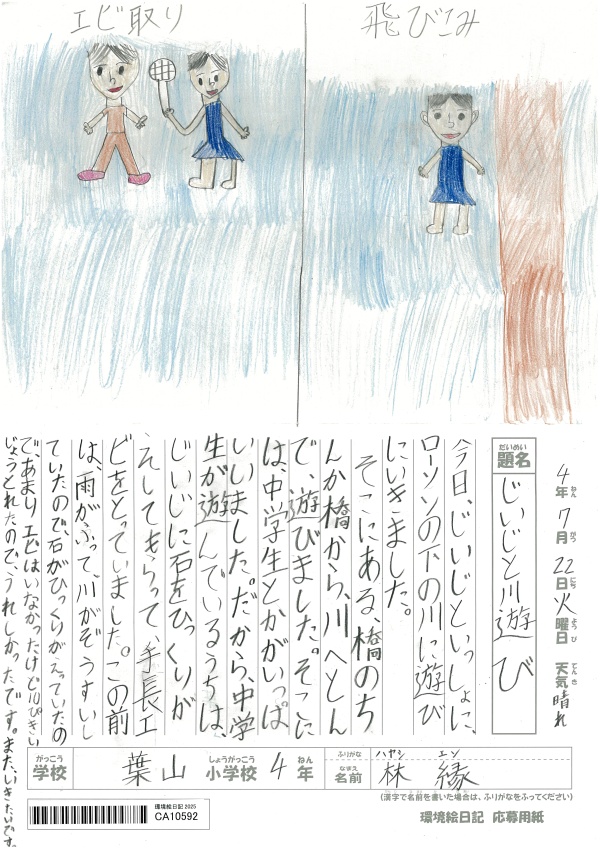 エビ取り
飛びこみ
4年7月22日火曜日 天気晴れ
ねん がつ にち ようび てんき
だいめい
題名
じいじと川遊び
今日、じいじといっしょに、
ローソンの下の川に遊び
にいきました。
そこにある、橋のち
んか橋から、川へとん
で、遊びました。そこに
は、中学生とかがいっぱ
いいました。だから、中学
生が遊んでいるうちは、
じいじに石をひっくりが
えしてもらって、手長エ
ビをとっていました。この前
は、雨がふって、川がぞうすいし
ていたので、石がひっくらがえっていたの
で、あまりエビはいなかったけど10ぴきい
じょうとれたので、うれしかったです。また、いきたいです。
がっこう しょうがっこう ねん
学校 葉山 小学校 4年
ふりがな ハヤシ エン
なまえ
名前 林 縁
(漢字で名前を書いた場合は、ふりがなをふってください)
環境絵日記 2025
CA10592
環境絵日記 応募用紙